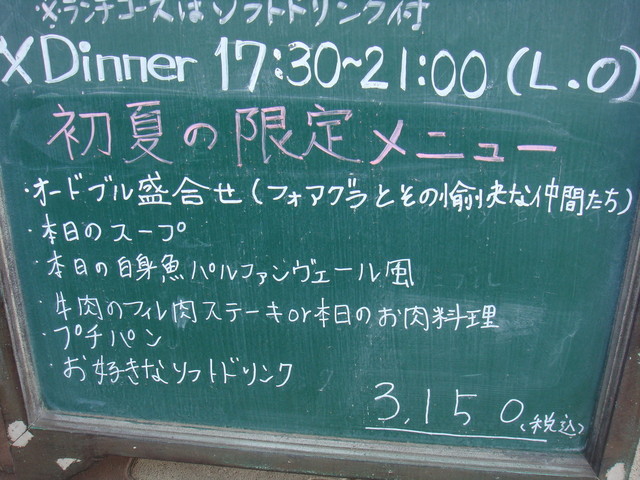 ※ランチコースはソフトドリンク付
※Dinner 17:30~21:00(L.O)
初夏の限定メニュー
・オードブル盛合せ(フォアグラとその愉快な仲間たち)
・本日のスープ
・本日の白身魚パルファンヴェール風
・牛肉のフィレ肉ステーキor本日のお肉料理
・プチパン
・お好きなソフトドリンク
3,150(税込)